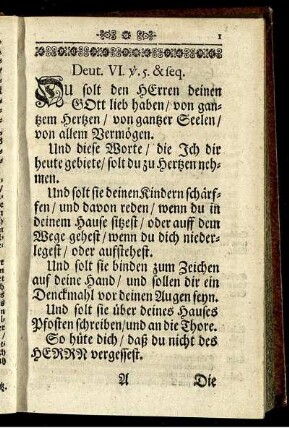 1
Deut. VI. ℣. 5. & seq.
DU solt den HErren deinen
GOtt lieb haben / von gan-
tzem Hertzen / von gantzer Seelen /
von allem Vermögen.
Und diese Worte / die Ich dir
heute gebiete / solt du zu Hertzen neh-
men.
Und solt sie deinen Kindern schärf-
fen / und davon reden / wenn du in
deinem Hause sitzest / oder auff dem
Wege gehest / wenn du dich nieder-
legest / oder auffstehest.
Und solt sie binden zum Zeichen
auf deine Hand / und sollen dir ein
Denckmahl vor deinen Augen seyn.
Und solt sie über deines Hauses
Pfosten schreiben / und an die Thore.
So hüte dich / daß du nicht des
HERRN vergessest.
A Die